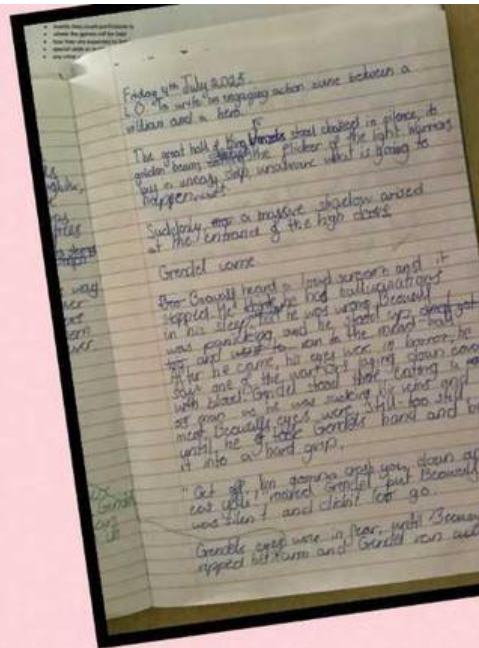 events they could participate in
where the games will be held
Friday 4th July 2025
L.O: To write an engaging action scene between a
villian and a hero.
The great hall of King stood cloaked in silence, its
golden beams the flicker of the light. Warriors
lay in uneasy sleep unaware what is going to
happen next.
Suddenly, a massive shadow arised
at the entrance of the high doors.
Grendel came
Beowulf heard a loud scream and it
stopped. He he had hallucinations
in his sleep but he was wrong. Beowulf
was panicking and he stood up,
and ran to the mead-hall
After he came, his eyes were in horror, he
saw one of the warriors laying down cover
with blood. Grendel stood there eating a
man as he was sucking his veins and
meat. Beowulfs eyes were still-too still
until he took Grendels hand and
it into a hard grip.
"Get off, Im gonna crush you down an
eat you!" Grendel but Beowulf
was silent and didnt let go.
Grendels eyes were in fear, until Beowu
ripped his arm and Grendel ran
way
Grendel